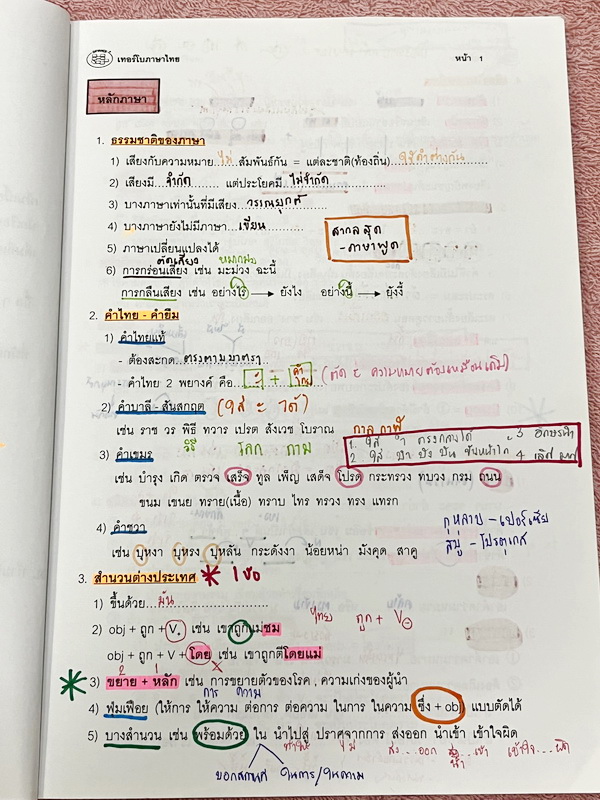 เทอร์โบภาษาไทย
หน้า 1
หลักภาษา
1. ธรรมชาติของภาษา
1) เสียงกับความหมาย...ไม่...สัมพันธ์กัน = แต่ละชาติ(ท้องถิ่น)...ใช้คำต่างกัน...
2) เสียงมี...จำกัด...แต่ประโยคมี...ไม่จำกัด...
3) บางภาษาเท่านั้นที่มีเสียง...วรรณยุกต์
4) บางภาษายังไม่มีภาษา...เขียน...
สากลสุด
- ภาษาพูด
5) ภาษาเปลี่ยนแปลงได้
ตัดเสียง หมากม่วง
6) การกร่อนเสียง เช่น มะม่วง ฉะนี้
การกลืนเสียง เช่น อย่างไร → ยังไง อย่างนี้ → ยังงี้
2. คำไทย - คำยืม
1) คำไทยแท้
- ต้องสะกด...ตรงตามมาตรา...
- คำไทย 2 พยางค์ คือ... -ะ + คำไทย (ตัด ะ ความหมายต้องเหมือนเดิม)
2) คำบาลี - สันสกฤต (ใส่ ะ ได้)
เช่น ราช วร พิธี ทวาร เปรต สังเวช โบราณ กาล กาฬ
วิธี โลก กาม
3) คำเขมร
เช่น บำรุง เกิด ตรวจ เสร็จ ทูล เพ็ญ เสด็จ โปรด กระทรวง ทบวง กรม ถนน
ขนม เขนย ทราย(เนื้อ) ทราบ ไทร ทรวง ทรง แทรก
4) คำชวา
กุหลาบ - เปอร์เซีย
สบู่ - โปรตุเกส
เช่น บุหงา บุหรง บุหลัน กระดังงา น้อยหน่า มังคุด สาคู
3. สำนวนต่างประเทศ * 1 ข้อ
1) ขึ้นด้วย...มัน...
2) obj + ถูก + V. เช่น เขาถูกแม่ชม
ไทย ถูก + V
obj + ถูก + V + โดย เช่น เขาถูกตีโดยแม่
2 1
3) ขยาย + หลัก เช่น การขยายตัวของโรค , ความเก่งของผู้นำ
การ ความ
4) ฟุ่มเฟือย (ให้การ ให้ความ ต่อการ ต่อความ ในการ ในความ ซึ่ง + obj แบบตัดได้
5) บางสำนวน เช่น พร้อมด้วย ใน นำไปสู่ ปราศจากการ ส่งออก นำเข้า เข้าใจผิด
ทำให้ ไม่ ส่ง...ออก นำ...เข้า เข้าใจ...ผิด
บอกสถานที่ ในการ/ในความ